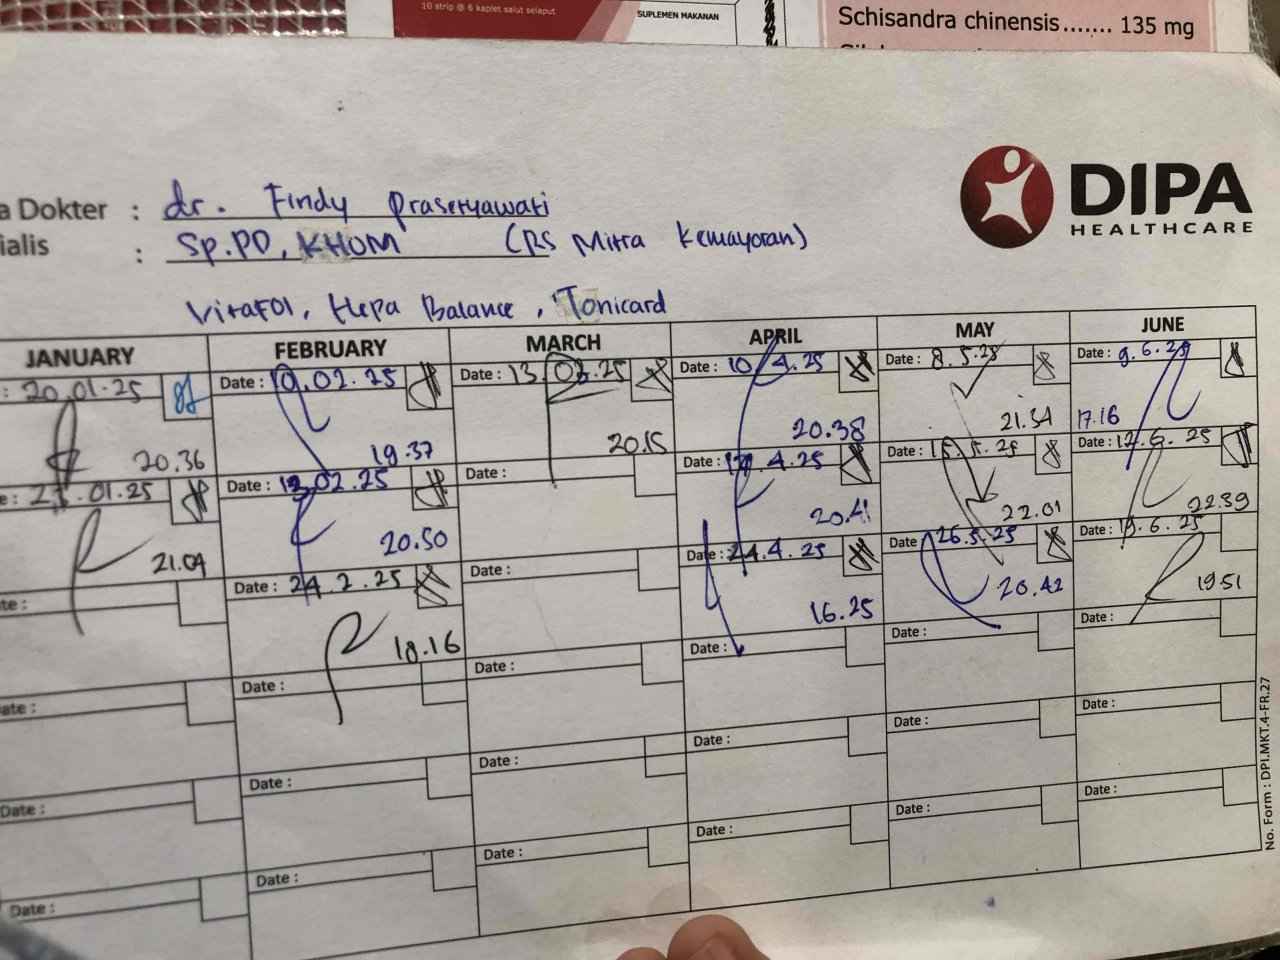 10 strip @ 6 kaplet salut selaput
SUPLEMEN MAKANAN
Schisandra chinensis....... 135 mg
DIPA
HEALTHCARE
a Dokter : dr. Findy Prasetyawati
ialis : Sp.PD, KHOM (RS Mitra Kemayoran)
VitaFOl, Hepa Balance, Tonicard
JANUARY FEBRUARY MARCH APRIL MAY JUNE
: 20.01.25 Date : 10.02.25 Date : 13.03.25 Date : 10.4.25 Date : 8.5.25 Date : 9.6.25
20.36 19.37 20.15 20.38 21.54 17.16
e: 27.01.25 Date : 13.02.25 Date : Date : 17.4.25 Date : 15.5.25 Date : 12.6.25
21.04 20.50 20.41 22.01 22.39
te: Date : 24.2.25 Date : Date : 24.4.25 Date 26.5.25 Date : 19.6.25
18.16 16.25 20.42 19.51
ate : Date : Date : Date : Date : Date :
Date : Date : Date : Date : Date : Date :
Date : Date : Date : Date : Date : Date :
No. Form : DPI.MKT.4-FR.27